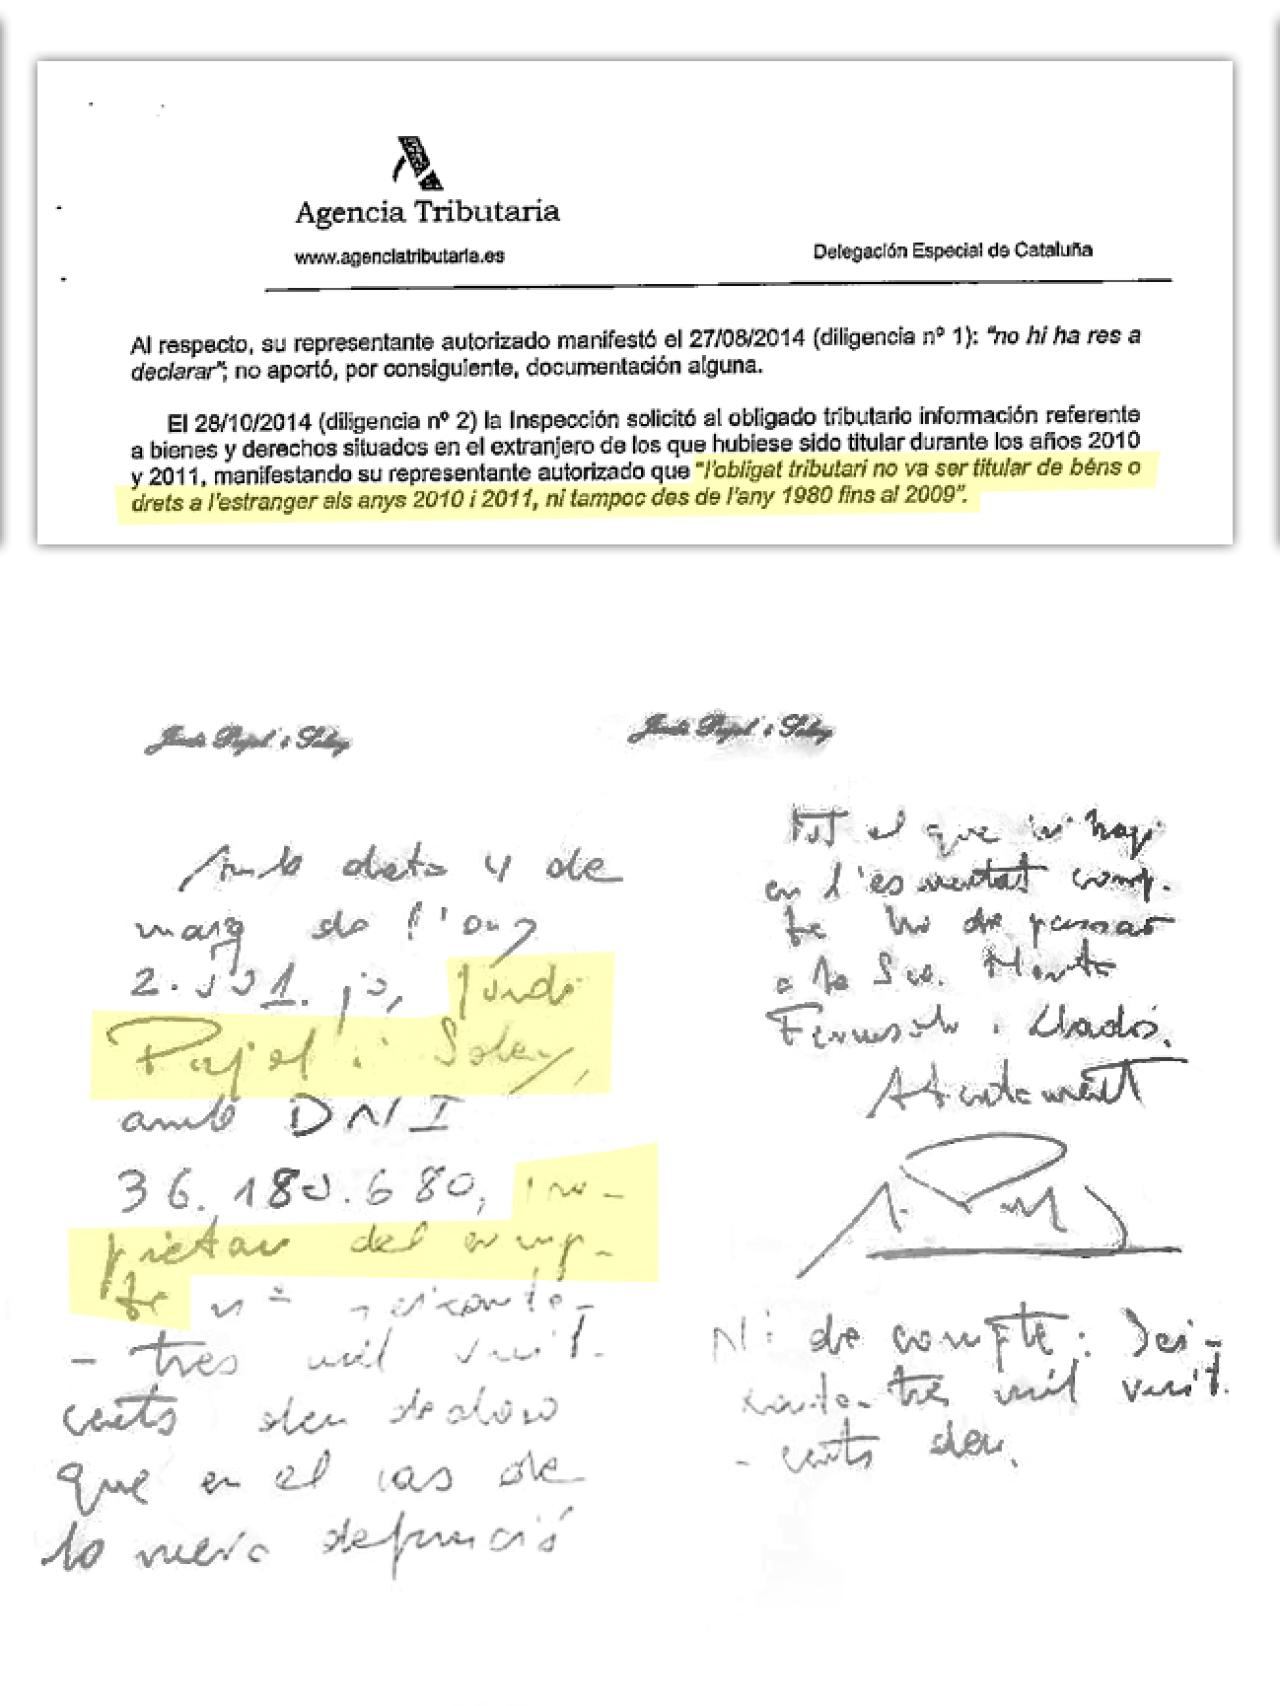 Agencia Tributaria
www.agenciatributaria.es
Delegación Especial de Cataluña
Al respecto, su representante autorizado manifestó el 27/08/2014 (diligencia nº 1): "no hi ha res a
declarar"; no aportó, por consiguiente, documentación alguna.
El 28/10/2014 (diligencia nº 2) la Inspección solicitó al obligado tributario información referente
a bienes y derechos situados en el extranjero de los que hubiese sido titular durante los años 2010
y 2011, manifestando su representante autorizado que "l'obligat tributari no va ser titular de béns o
drets a l'estranger als anys 2010 i 2011, ni tampoc des de l'any 1980 fins al 2009".
Jordi Pujol i Soley
Amb data 4 de
març de l'any
2.001. jo, Jordi
Pujol i Soley,
amb DNI
36.180.680, pro-
pietari del comp-
te nº seixanta-
- tres mil vuit.
cents deu declaro
que en el cas de
la meva defunció
Jordi Pujol i Soley
Tot el que hi hagi
en l'esmentat comp.
te ho de passar
a la Sra. Marta
Ferrusola i Lladós.
Atentament
Nº de compte: Sei-
xanta-tres mil vuit.
- cents deu.